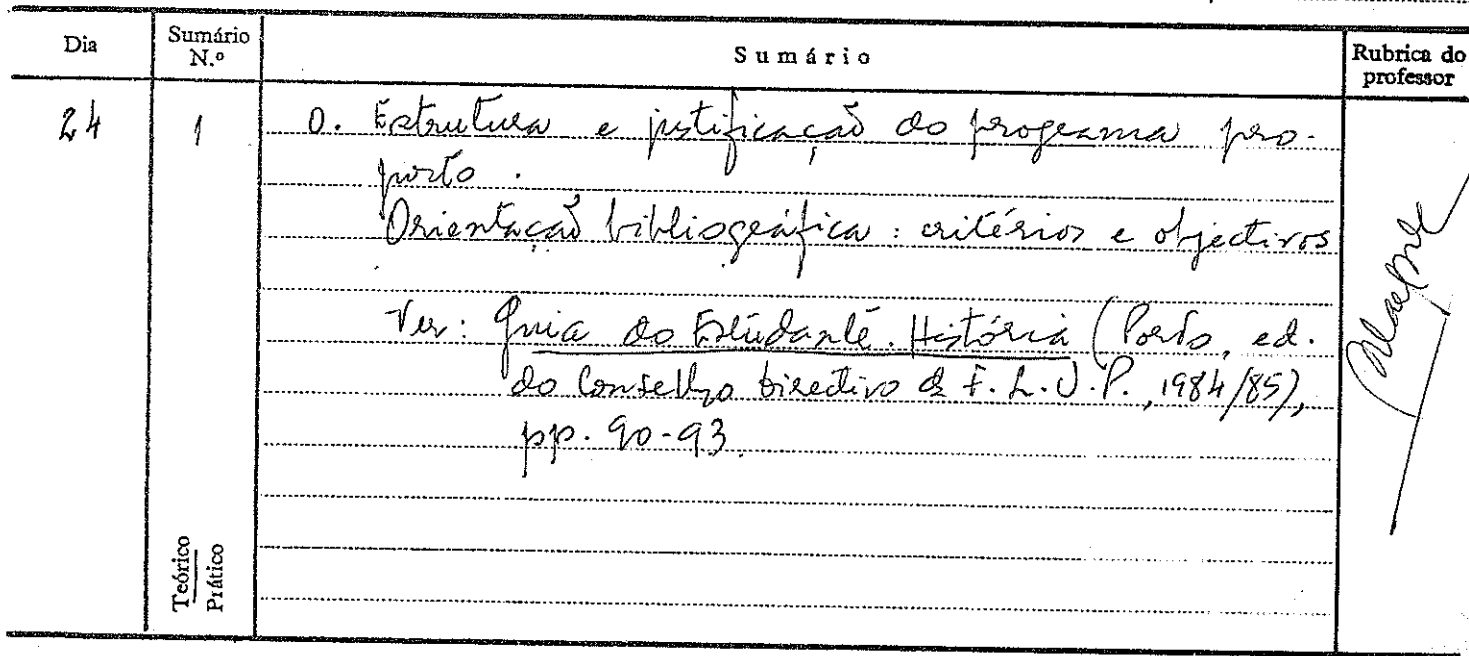 Dia
Sumário N.º
Sumário
Rubrica do professor
24
1
0. Estrutura e justificação do programa pro-
posto.
Orientação bibliográfica: critérios e objectivos
Ver: Guia do Estudante. História (Porto, ed.
do Conselho Directivo da F.L.U.P., 1984/85),
pp. 90-93.
Teórico
Prático